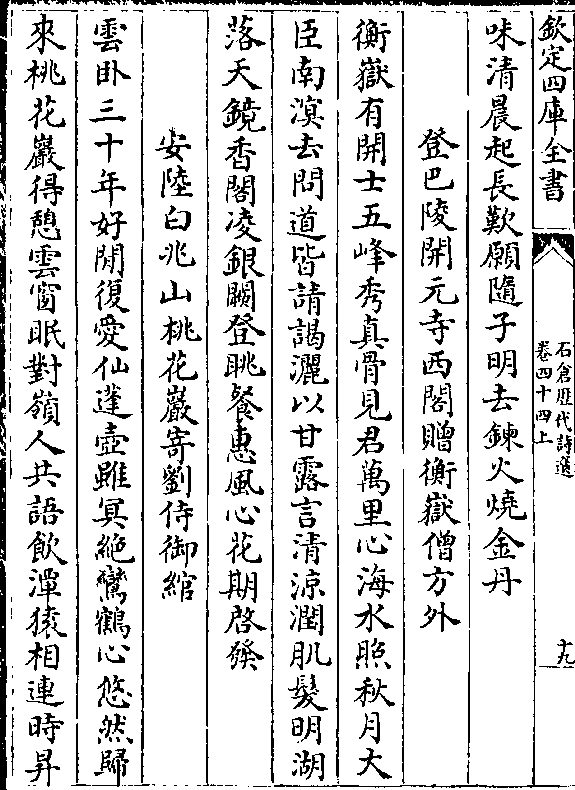 欽定四庫全書
石倉歷代詩選
卷四十四上
十九
味清晨起長歎願隨子明去鍊火燒金丹
登巴陵開元寺西閣贈衡嶽僧方外
衡嶽有開士五峰秀真骨見君萬里心海水照秋月大
臣南溟去問道皆請謁灑以甘露言清涼潤肌髮明湖
落天鏡香閣凌銀闕登眺餐惠風心花期啓發
安陸白兆山桃花巖寄劉侍御綰
雲卧三十年好閒復愛仙蓬壺雖冥絶鸞鶴心悠然歸
來桃花巖得憩雲窗眠對嶺人共語飲潭猿相連時昇